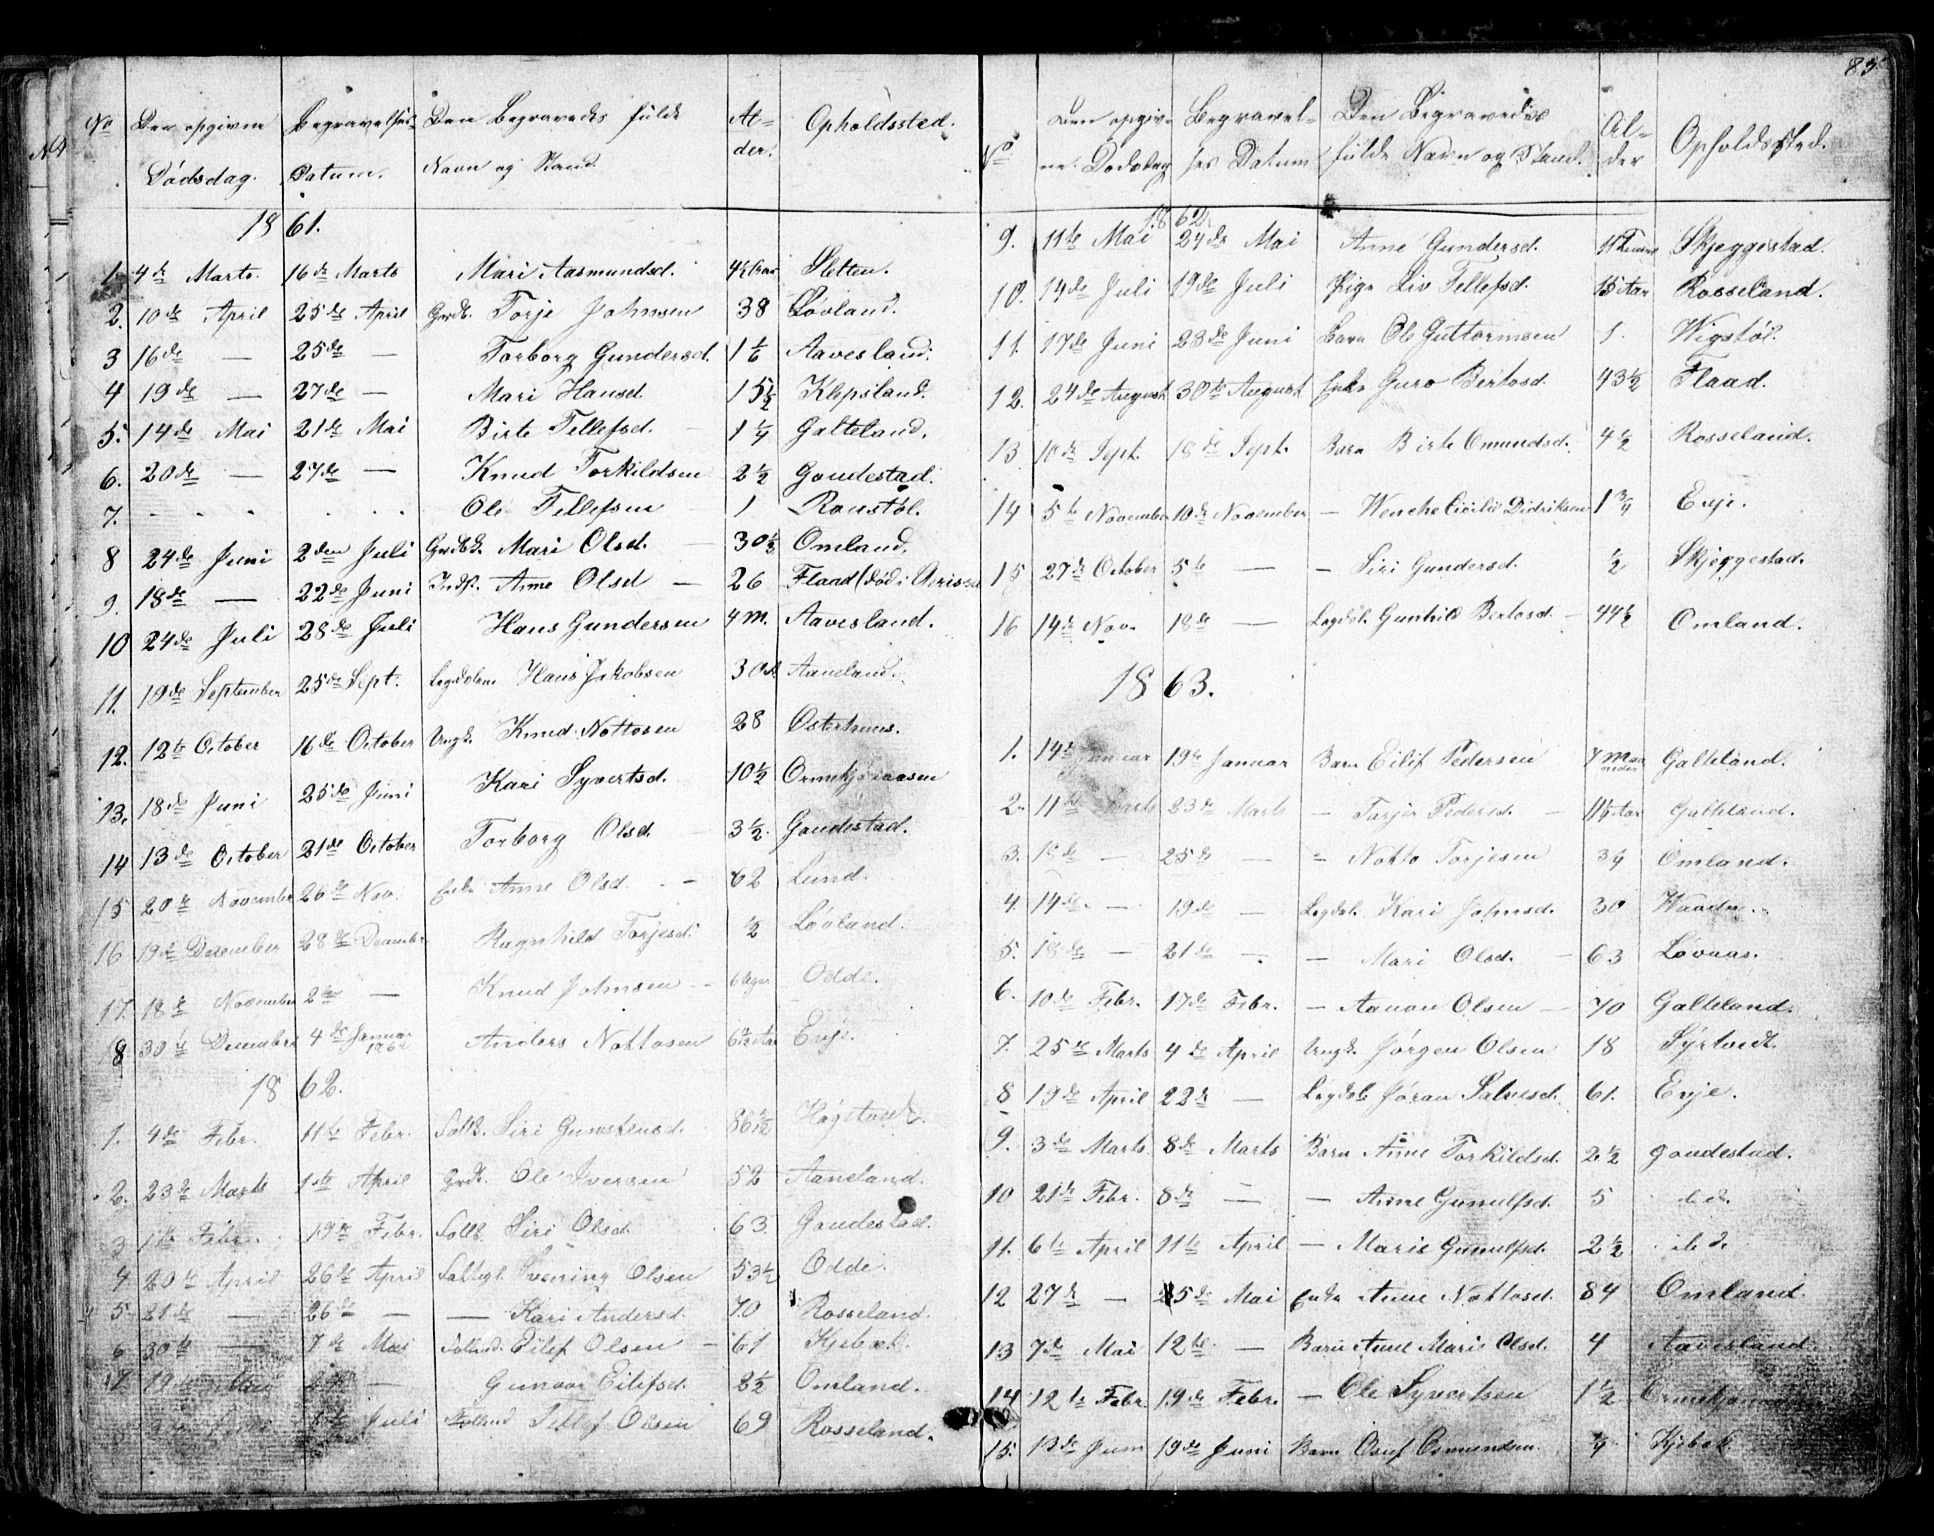 85
No Den opgivne Dødsdag. Begravelses Datum. Den Begravedes fulde Navn og Stand. Al- der. Opholdssted.
1861.
1. 4de Marts. 16de Marts Mari Aasmundsd. Sletten.
2. 10de April 25de April Grdb. Torje Johnsen 38 Løvland.
3 16de — 25de — Torborg Gundersd. 1 1/6 Aavesland.
4 19de — 27de — Mari Hansd. 15 1/2 Klepsland.
5. 14de Mai 21de Mai Birte Tellefsd. 1 1/4 Galteland.
6. 20de — 27de — Knud Torkildsen 2 1/2 Gaudestad.
7. . . . . . . Ole Tellefsen 1 Ronstøl.
8 24de Juni 2den Juli Mari Olsd. 30 1/2 Omland.
9. 18de — 22de Juni Inds. Anne Olsd — 26 Flaad (død i
10 24de Juli 28de Juli Hans Gundersen 4 M. Aavesland.
11. 19de September 25de Sept. Hans Jakobsen 30 Aaneland.
12. 12te October 16de October Ungk. Knud Nottosen 28 Østerhuus.
13. 18de Juni 25de Juni Kari Syvertsd. 10 1/2
14 13de October 21de October Torborg Olsd. 3 1/2 Gaudestad.
15 20de November 26de Nov. Enke Anne Olsd. — 62 Lund.
16 19de December 28de December Ragnhild Torjesd. 1/2 Løvland.
17. 18de November 2den — Knud Johnsen — 6 Dage Odde.
18 30te December 4de Januar 1862 Anders Nottosen Evje.
1862.
1. 4de Febr. 11te Febr. Siri Gunstensd. Høgstøel.
2. 23de Marts 1ste April Grdb. Ole Iversen 52 Aaneland.
3 1ste Febr. 19de Febr. Siri Olsd. 63. Gaudestad.
4 20de April 26de April Svening Olsen 53 1/2 Odde.
5 21de — 26de — — Kari Andersd 70 Rosseland.
6 30te — 7de Mai Eilef Olsen — 61 Kjebæk.
7 19de Mai — Gunvor Eilefsd. 8 1/2 Omland.
Juli Tellef Olsen 69 Rosseland.
No Den opgiv- ne Dødsdag Begravel- ses Datum Den Begravedes fulde Navn og Stand. Al- der Opholdssted.
1862
9. 11te Mai 24de Mai Anne Gundersd. Skjeggestad.
10. 14de Juli 19de Juli Pige Liv Tellefsd. 15 Aar Rosseland.
11. 17de Juni 23de Juni Barn Ole Guttormsen 1. Wigstøl.
12. 24de August 30te August Enke Guro Bertosd. 43 1/2 Flaad.
13 10de Sept. 18de Sept. Barn Birte Omundsd. 4 1/2 Rosseland.
14 5te November 10de November — Wenche Cicilie Didriksen 1 3/4 Evje.
15 27de October 5te — — Siri Gundersd. 1/2 Skjeggestad.
16 14de Nov. 18de — Legdsl. Gunhild Bertosd. — 44 1/2 Omland.
1863.
1. 14de Januar 19de Januar Barn Eilef Pedersen 7 Maaneder Galteland.
2. 11te Marts 23de Marts — Torjer Pedersd. — Galteland.
3. 18de — 25de — — Notto Torjesen 3/4 Omland.
4. 14de — 19de — Legdsl. Kari Johnsd. 30
5. 18de — 21de — — Mari Olsd. — 63 Løvaas.
6. 10de Febr. 17de Febr. — Aanon Olsen — 70 Galteland.
7. 25de Marts 4de April Ungk. Jørgen Olsen 18 Syrtveit.
8 19de April 22de — Legdsl. Jøran Salvesd. 61. Evje.
9. 3de Marts. 8de Marts Barn Anne Torkildsd. 2 1/2 Gaudestad.
10 21de Febr. 8de — — Anne Gunulfsd. 5 do.
11. 6te April 11te April — Marie Gunulfsd. 2 1/2 do.
12 27de — 5de Mai Enke Anne Nottosd. 84 Omland.
13 7de Mai 12te — Barn Anne Marie Olsd. 4 Aavesland.
14 12te Febr. 19de Febr. — Ole Syvertsen 1 1/2
15. 13de Juni 19de Juni Barn Osuf Omundsen. Kjebæk